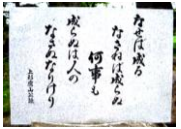 なせは成る
なさねは成らぬ
何事も
成らぬは人の
なさぬなりけり
上杉鷹山公